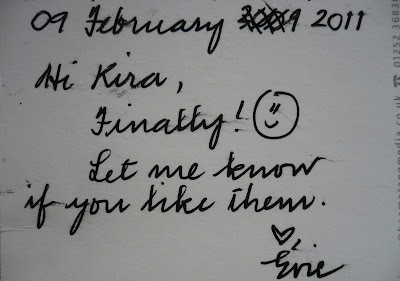 09 February 2011
Hi Kira,
Finally!
Let me know
if you like them.
Evie
01252
media.co.uk